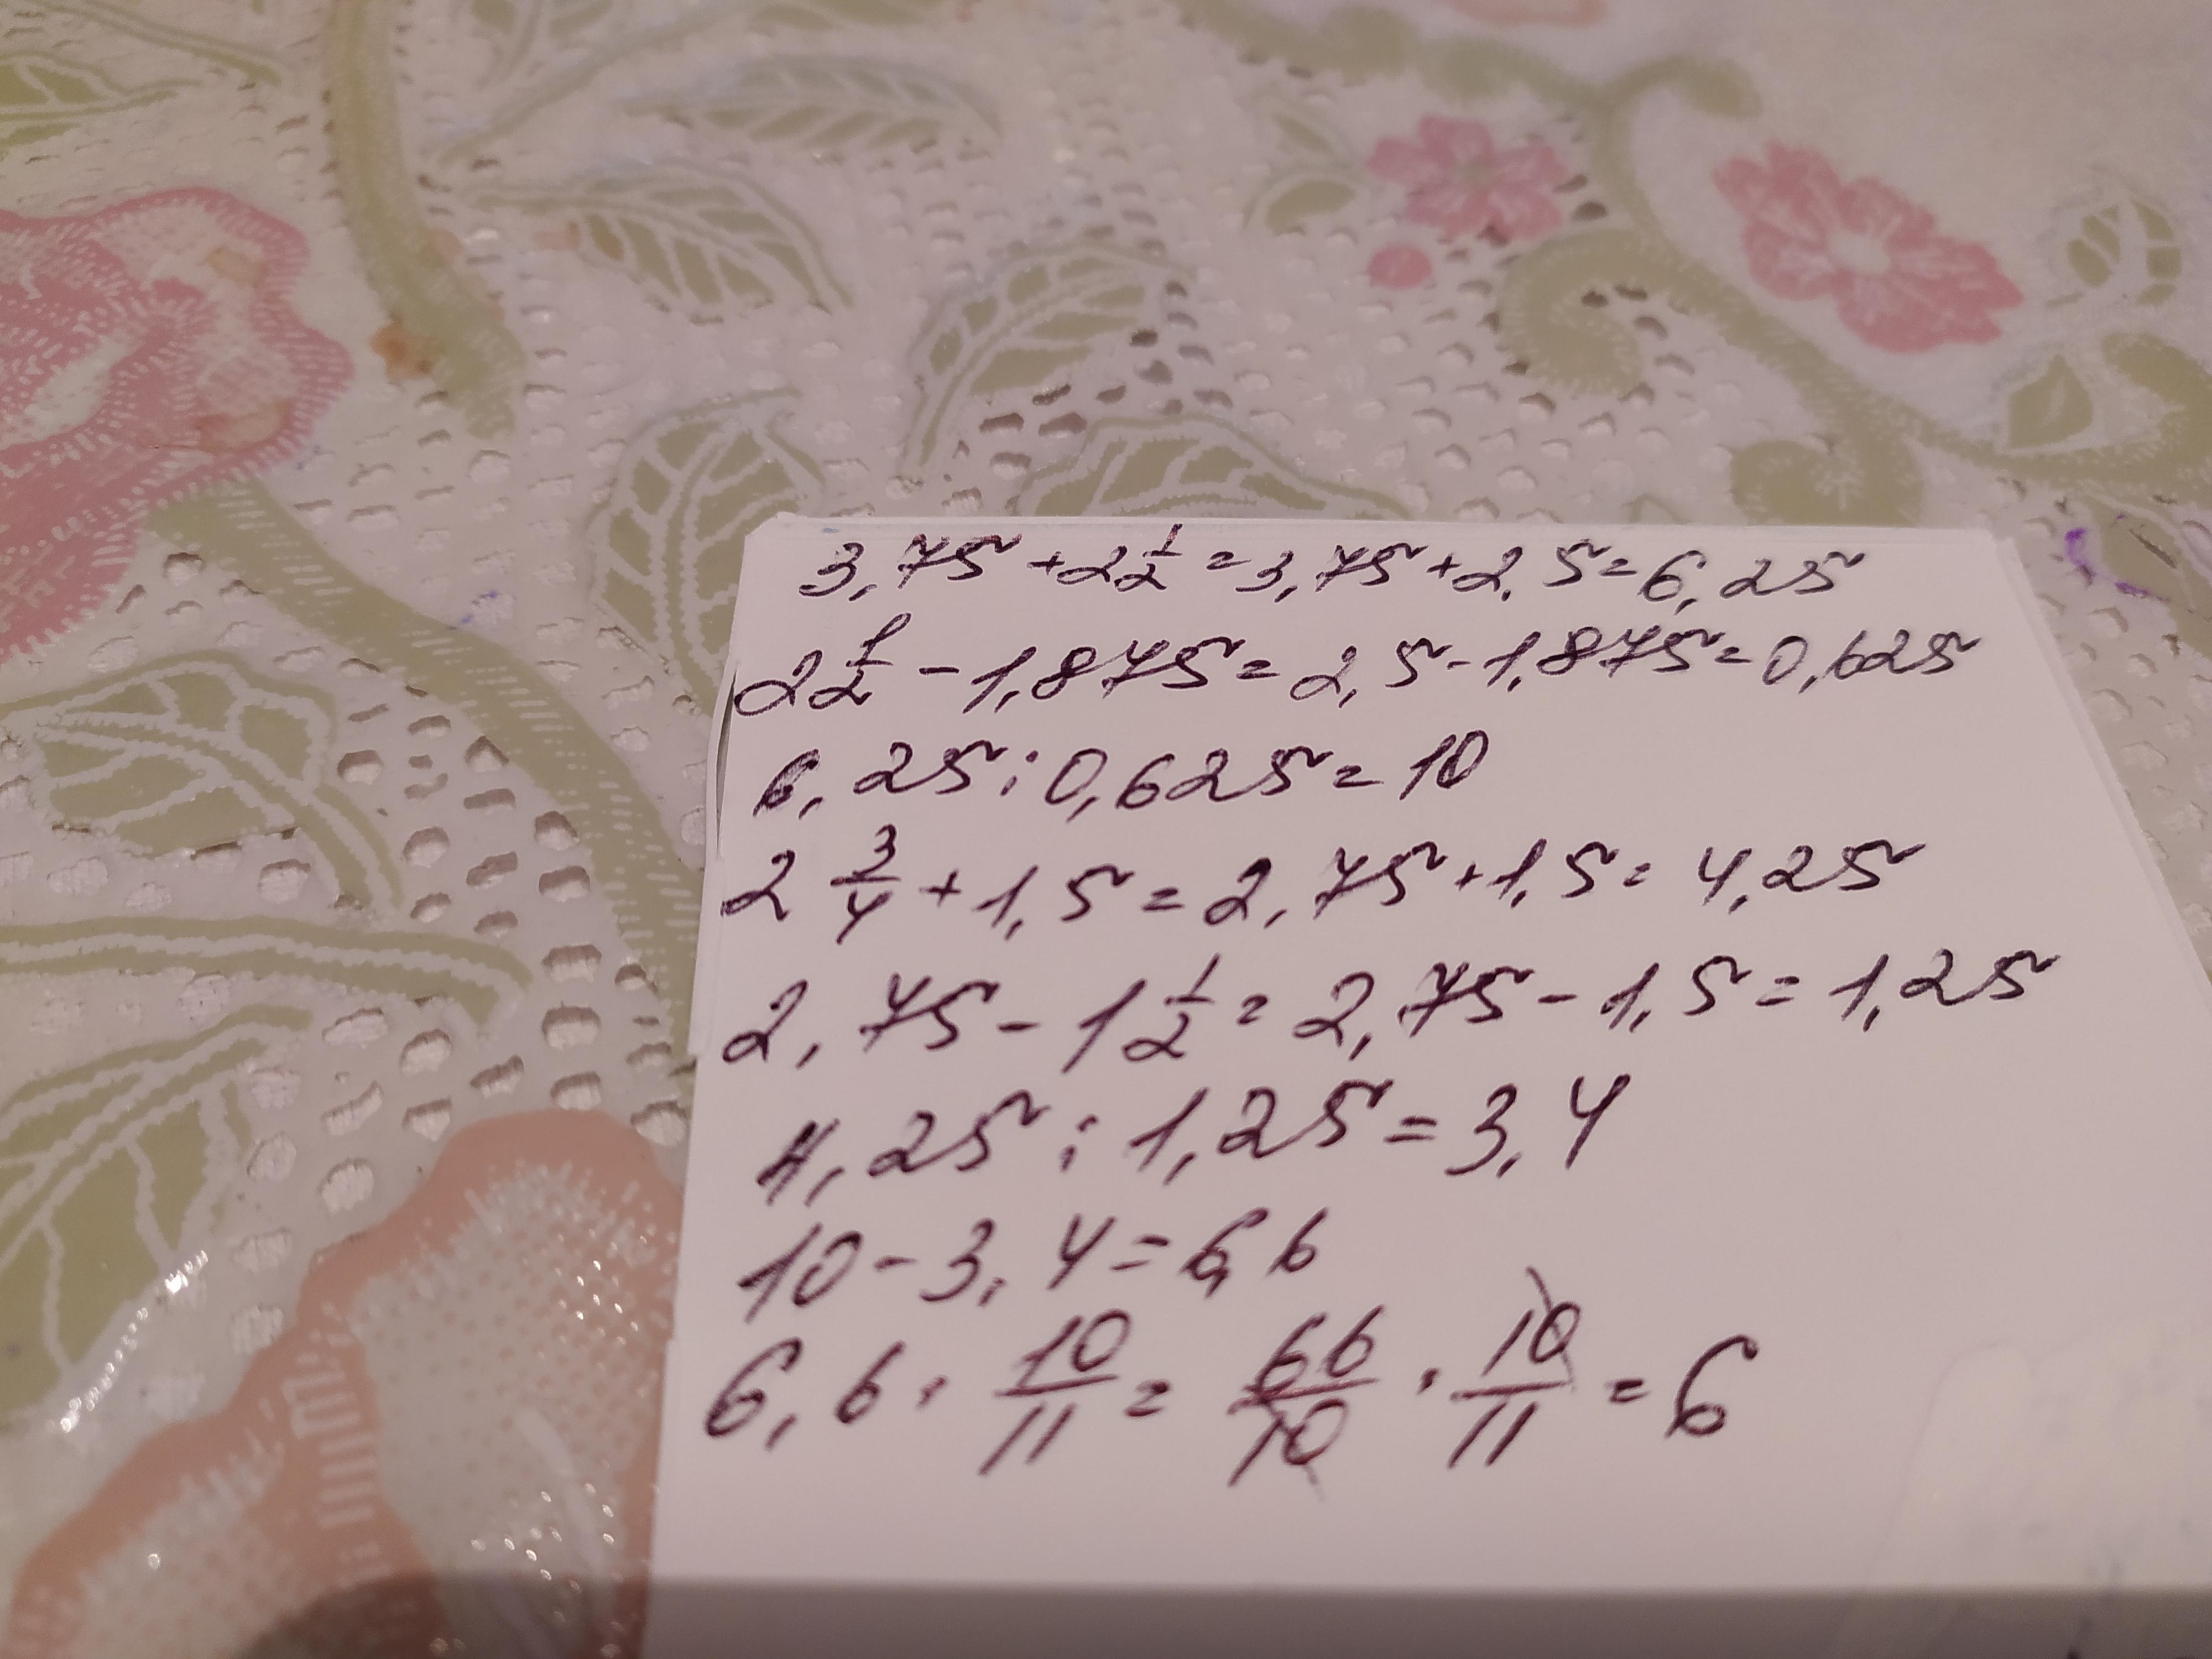 3,75 + 2 1/2 = 3,75 + 2,5 = 6,25
2 1/2 - 1,875 = 2,5 - 1,875 = 0,625
6,25 : 0,625 = 10
2 3/4 + 1,5 = 2,75 + 1,5 = 4,25
2,75 - 1 1/2 = 2,75 - 1,5 = 1,25
4,25 : 1,25 = 3,4
10 - 3,4 = 6,6
6,6 · 10/11 = 66/10 · 10/11 = 6